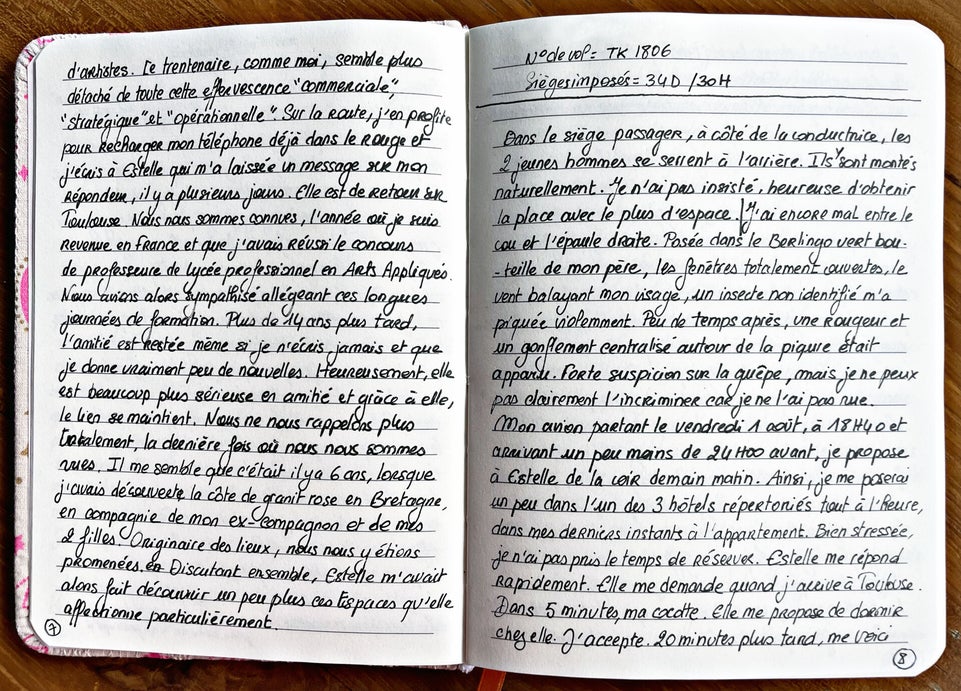 d'artistes. Le trentenaire, comme moi, semble plus
détaché de toute cette effervescence "commerciale",
"stratégique" et "opérationnelle". Sur la route, j'en profite
pour recharger mon téléphone déjà dans le rouge et
j'écris à Estelle qui m'a laissée un message sur mon
répondeur, il y a plusieurs jours. Elle est de retour sur
Toulouse. Nous nous sommes connues, l'année où je suis
revenue en France et que j'avais réussi le concours
de professeure de lycée professionnel en Arts Appliqués.
Nous avions alors sympathisé allégeant ces longues
journées de formation. Plus de 14 ans plus tard,
l'amitié est restée même si je n'écris jamais et que
je donne vraiment peu de nouvelles. Heureusement, elle
est beaucoup plus sérieuse en amitié et grâce à elle,
le lien se maintient. Nous ne nous rappelons plus
totalement, la dernière fois où nous nous sommes
vues. Il me semble que c'était il y a 6 ans, lorsque
j'avais découverte la côte de granit rose en Bretagne,
en compagnie de mon ex-compagnon et de mes
2 filles. Originaire des lieux, nous nous y étions
promenées en Discutant ensemble, Estelle m'avait
alors fait découvrir un peu plus ces Espaces qu'elle
affectionne particulièrement.
7
N° de vol = TK 1806
Sièges imposés = 34D / 30H
Dans le siège passager, à côté de la conductrice, les
2 jeunes hommes se serrent à l'arrière. Ils y sont montés
naturellement. Je n'ai pas insisté, heureuse d'obtenir
la place avec le plus d'espace. J'ai encore mal entre le
cou et l'épaule droite. Posée dans le Berlingo vert bou-
-teille de mon père, les fenêtres totalement ouvertes, le
vent balayant mon visage, un insecte non identifié m'a
piquée violemment. Peu de temps après, une rougeur et
un gonflement centralisé autour de la piqure était
apparu. Forte suspicion sur la guêpe, mais je ne peux
pas clairement l'incriminer car je ne l'ai pas vue.
Mon avion partant le vendredi 1 août, à 18H40 et
arrivant un peu moins de 24H00 avant, je propose
à Estelle de la voir demain matin. Ainsi, je me poserai
un peu dans l'un des 3 hôtels répertoriés tout à l'heure,
dans mes derniers instants à l'appartement. Bien stressée,
je n'ai pas pris le temps de réserver. Estelle me répond
rapidement. Elle me demande quand j'arrive à Toulouse.
Dans 5 minutes, ma cocotte. Elle me propose de dormir
chez elle. J'accepte. 20 minutes plus tard, me voici
8